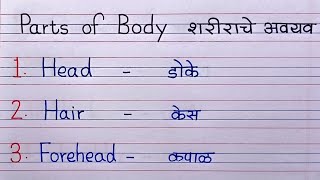 Parts of Body शरीराचे अवयव
1. Head - डोके
2. Hair - केस
3. Forehead - कपाळ